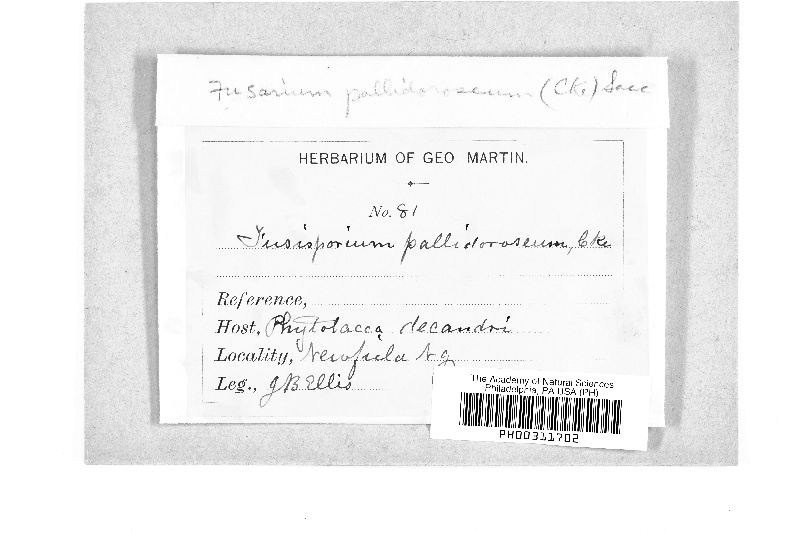 Fusarium pallidoroseum (Cke) Sacc
HERBARIUM OF GEO MARTIN.
No. 81
Fusisporium pallidoroseum, Cke
Reference,
Host, Phytolacca decandri
Locality, Newfield N.J.
Leg., JB Ellis
The Academy of Natural Sciences
Philadelphia, PA USA (PH)
PH00311702